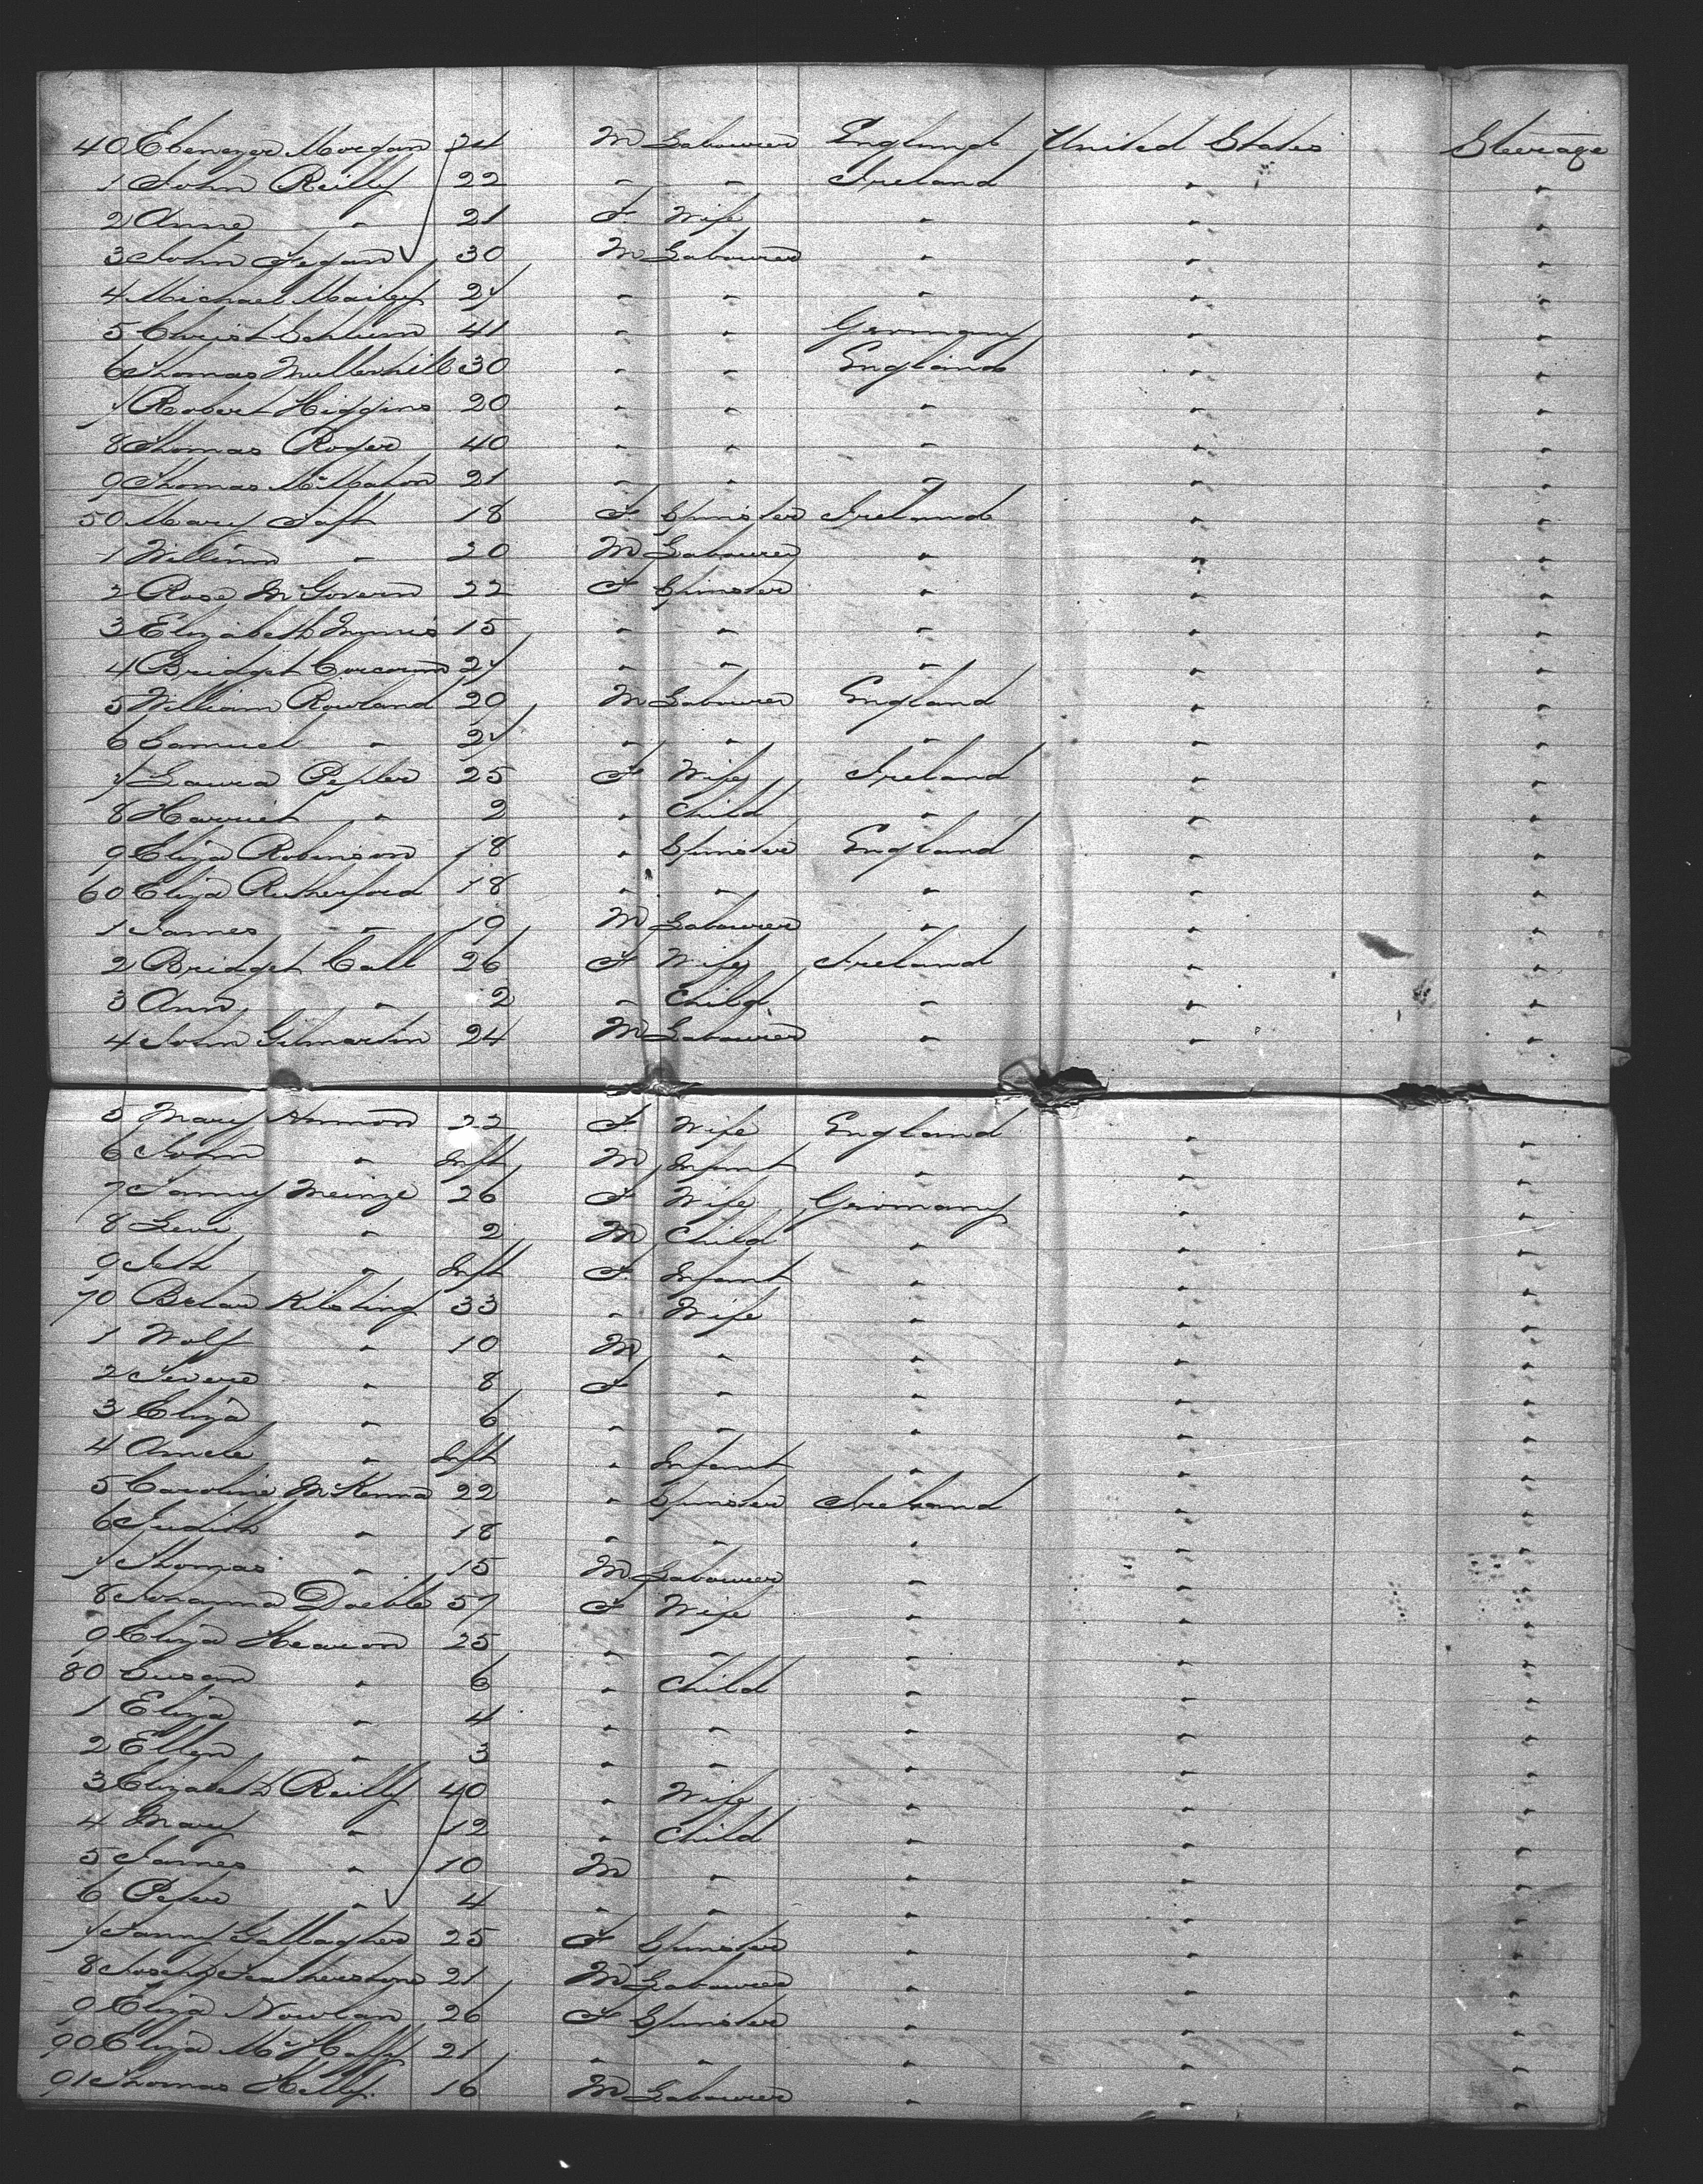 40 Ebenezer Morgan 24 M Labourer England United States Steerage
1 John Reilly 22 " " Ireland " "
2 Anne " 21 F Wife " " "
3 John Fegan 30 M Labourer " " "
4 Michael 27 " " " " "
5 Christ 41 " " Germany " "
6 Thomas 30 " " England " "
7 Robert Higgins 20 " " " " "
8 Thomas Roger 40 " " " " "
9 Thomas McMahon 21 " " " " "
50 Mary Taft 18 F Spinster Ireland " "
1 William " 20 M Labourer " " "
2 Rose McGovern 22 F Spinster " " "
3 Elizabeth 15 " " " " "
4 Bridget Corcoran 27 " " " " "
5 William Rowland 20 M Labourer England " "
6 Samuel " 27 " " " " "
7 Laura 25 F Wife Ireland " "
8 Harriet " 2 " Child " " "
9 Eliza Robinson 18 " Spinster England " "
60 Eliza Rutherford 18 " " " " "
1 James " 19 M Labourer " " "
2 Bridget Call 26 F Wife Ireland " "
3 Ann " 2 " Child " " "
4 John Gilmartin 24 M Labourer " " "
5 Mary 22 F Wife England " "
6 John " Inft M Infant " " "
7 Meinze 26 F Wife Germany " "
8 Levi " 2 M Child " " "
9 " Inft F Infant " " "
70 33 " Wife " " "
1 Wolf " 10 M " " " "
2 " 8 F " " " "
3 Eliza " 6 " " " " "
4 Amele " Inft " Infant " " "
5 Caroline McKenna 22 " Spinster Ireland " "
6 Judith " 18 " " " " "
7 Thomas " 15 M Labourer " " "
8 Johanna 57 F Wife " " "
9 Eliza 25 " " " " "
80 Susan " 6 " Child " " "
1 Eliza " 4 " " " " "
2 Ellen " 3 " " " " "
3 Elizabeth Reilly 40 " Wife " " "
4 Mary " 12 " Child " " "
5 James " 10 M " " " "
6 Peter " 4 " " " " "
7 Fanny Gallagher 25 F Spinster " " "
8 Joseph Featherstone 21 M Labourer " " "
9 Eliza Nowlan 26 F Spinster " " "
90 Eliza 21 " " " " "
91 Thomas Kelly 16 M Labourer " " "